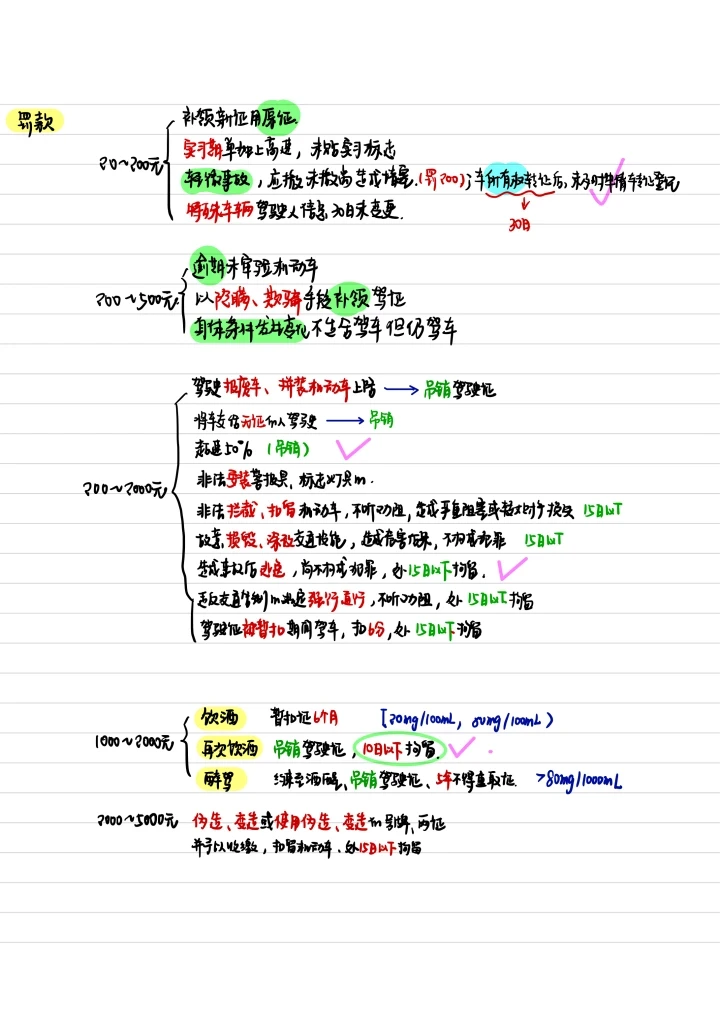 罚款
20~200元
补领新证用原证.
实习期单独上高速, 未贴实习标志
轻微事故, 应撤未撤而造成堵塞.(罚200); 车所有权转让后, 未及时申请转让登记
30日
特殊车辆驾驶人信息30日未变更.
200~500元
逾期未审验机动车
以隐瞒、欺骗手段补领驾证
身体条件发生变化不适合驾车但仍驾车
200~2000元
驾驶报废车、拼装机动车上路 → 吊销驾驶证
将车交给无证的人驾驶 → 吊销
超速50% (吊销)
非法安装警报具、标志灯具的.
非法拦截、扣留机动车, 不听劝阻, 造成严重阻塞或较大财产损失 15日以下
故意损毁、涂改交通设施, 造成危害后果, 不构成犯罪 15日以下
造成事故后逃逸, 尚不构成犯罪, 处15日以下拘留.
违反交通管制的规定强行通行, 不听劝阻, 处15日以下拘留
驾驶证被暂扣期间驾车, 扣6分, 处15日以下拘留
1000~2000元
饮酒 暂扣证6个月 [20mg/100mL, 80mg/100mL)
再次饮酒 吊销驾驶证, 10日以下拘留.
醉驾 约束至酒醒、吊销驾驶证、5年不得重取证. >80mg/1000mL
2000~5000元 伪造、变造或使用伪造、变造的号牌、两证
并予以收缴, 扣留机动车. 处15日以下拘留